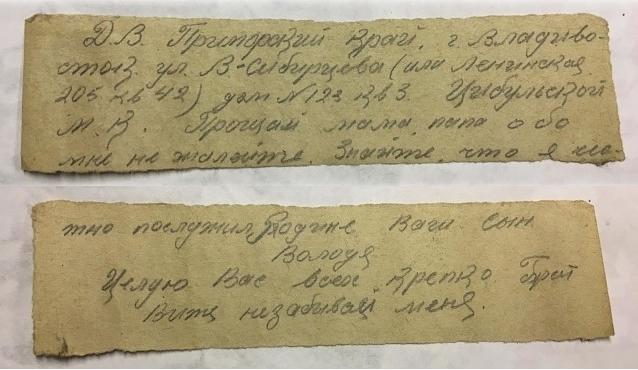 Д.В. Приморский край, г. Владиво-
сток. ул. В-Сибирцева (или Ленинская
205 кв 42) дом N 123 кв 3. Цибульской
М. К. Прощай мама, папа о бо
мне не жалейте. Знайте, что я че-
тно послужил Родине Ваш сын
Володя
Целую Вас всех крепко Брат
Витя незабывай меня.